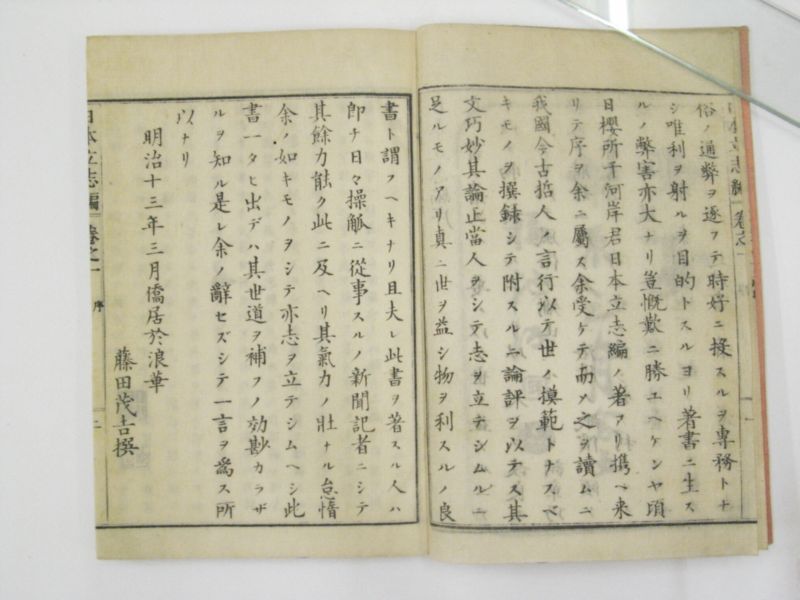 俗ノ通弊ヲ逐フテ時好ニ投スルヲ専務トナ
シ唯利ヲ射ルヲ目的トスルヨリ著書ニ生ス
ルノ弊害亦大ナリ豈慨歎ニ勝ユヘケンヤ頃
日櫻所千河岸君日本立志編ノ著アリ携ヘ来
リテ序ヲ余ニ属ス余受ケテ而メ之ヲ讀ムニ
我國今古哲人ノ言行以テ世ノ摸範トナスベ
キモノヲ撰録シテ附スルニ論評ヲ以テス其
文巧妙其論正當人ヲシテ志ヲ立テシムルニ
足ルモノアリ真ニ世ヲ益シ物ヲ利スルノ良
書ト謂フヘキナリ且夫レ此書ヲ著スル人ハ
即チ日々操觚ニ從事スルノ新聞記者ニシテ
其餘力能ク此ニ及ヘリ其氣力ノ壮ナル怠惰
余ノ如キモノヲシテ亦志ヲ立テシムヘシ此
書一タヒ出デハ其世道ヲ補フノ効尠カラザ
ルヲ知ル是レ余ノ辭セズシテ一言ヲ為ス所
以ナリ
明治十三年三月僑居於浪華
藤田茂吉撰
日本立志編 巻之一 序 二